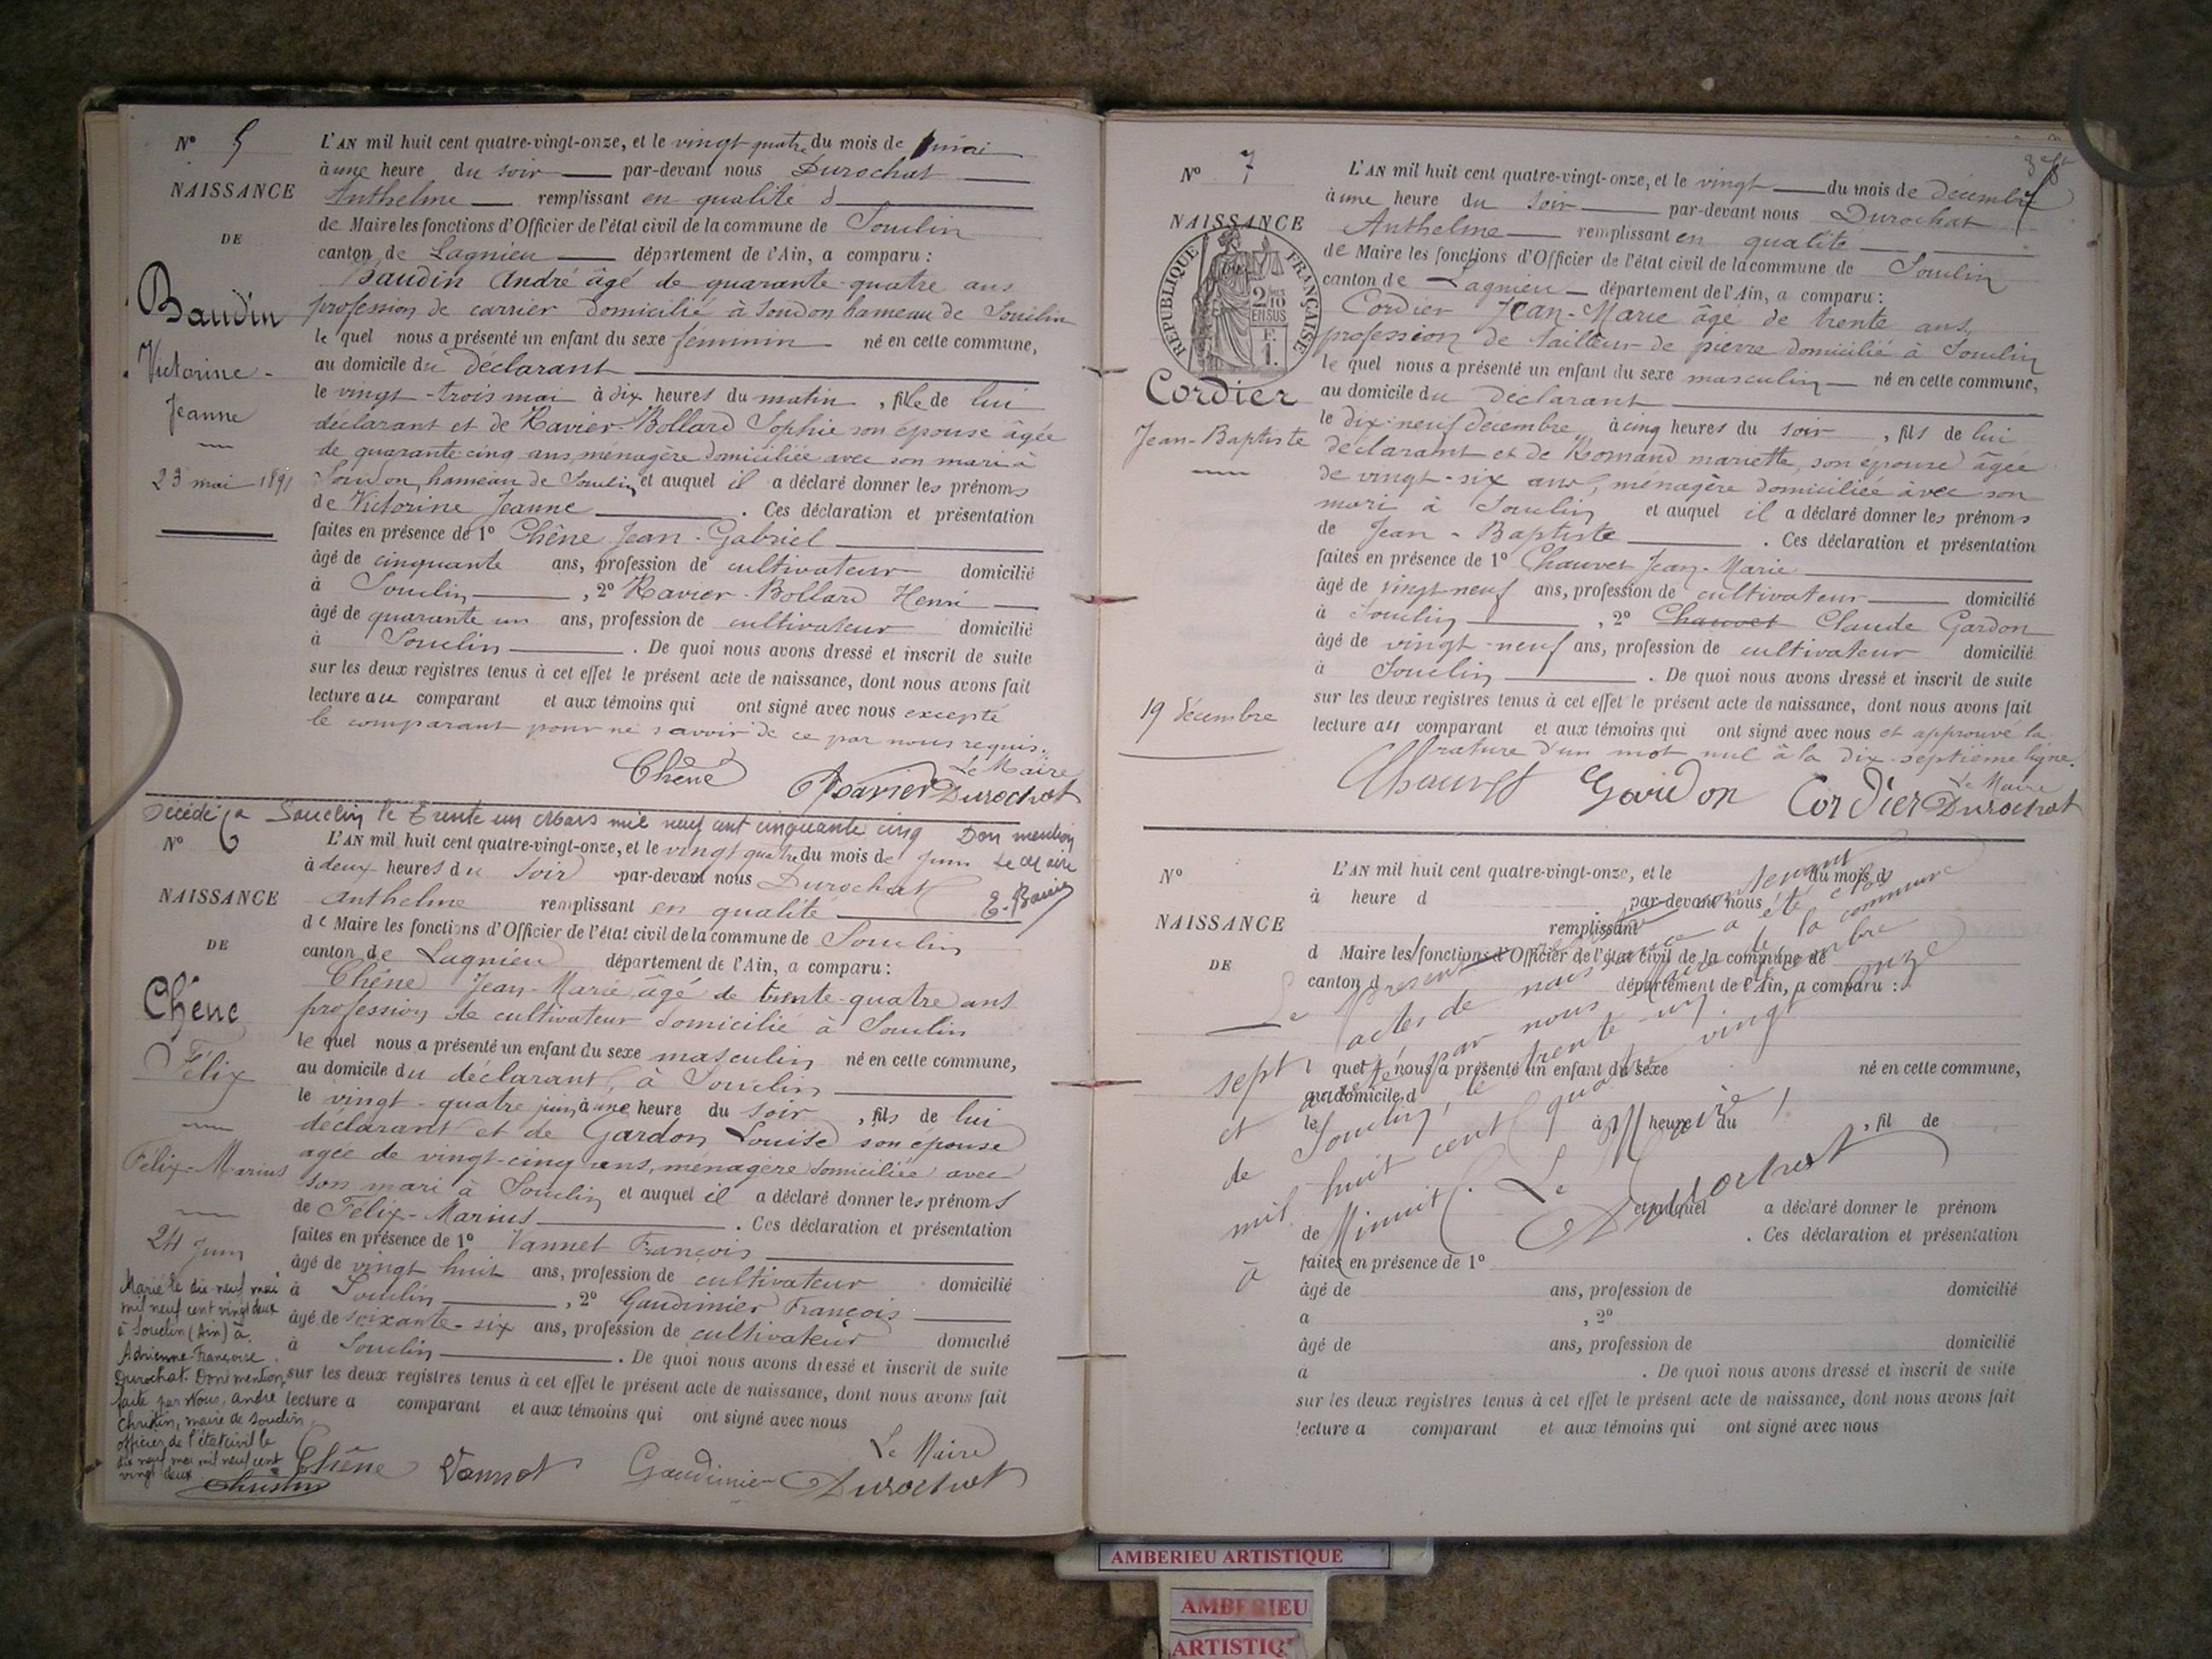 N° 5
NAISSANCE
DE
Baudin
Victorine-
Jeanne
23 mai 1891
L'AN mil huit cent quatre-vingt-onze, et le vingt quatre du mois de mai
à une heure du soir par-devant nous Durochat
Anthelme remplissant en qualité d
de Maire les fonctions d'Officier de l'état civil de la commune de Souclin
canton de Lagnieu département de l'Ain, a comparu :
Baudin André âgé de quarante-quatre ans
profession de carrier domicilié à Soudon hameau de Souclin
le quel nous a présenté un enfant du sexe féminin né en cette commune,
au domicile du déclarant
le vingt-trois mai à dix heures du matin, fille de lui
déclarant et de Ravier-Bollard Sophie son épouse âgée
de quarante-cinq ans, ménagère domiciliée avec son mari à
Soudon, hameau de Souclin et auquel il a déclaré donner les prénoms
de Victorine Jeanne . Ces déclaration et présentation
faites en présence de 1° Chêne Jean-Gabriel
âgé de cinquante ans, profession de cultivateur domicilié
à Souclin , 2° Ravier-Bollard Henri
âgé de quarante un ans, profession de cultivateur domicilié
à Souclin . De quoi nous avons dressé et inscrit de suite
sur les deux registres tenus à cet effet le présent acte de naissance, dont nous avons fait
lecture au comparant et aux témoins qui ont signé avec nous excepté
le comparant pour ne savoir de ce par nous requis.
Le Maire
Chêne Ravier Durochat
Décédé à Souclin le trente un Mars mil neuf cent cinquante cinq Dont mention
Le Maire
N° 6
NAISSANCE
DE
Chêne
Félix
Félix-Marius
24 Juin
Marié le dix-neuf mai
mil neuf cent vingt deux
à Souclin (Ain) à
Adrienne-Françoise
Durochat. Dont mention
faite par Nous, André
Christin, maire de Souclin
officier de l'état civil le
dix neuf mai mil neuf cent
vingt-deux
Christin
L'AN mil huit cent quatre-vingt-onze, et le vingt quatre du mois de Juin
à deux heures du soir par-devant nous Durochat
Anthelme remplissant en qualité
de Maire les fonctions d'Officier de l'état civil de la commune de Souclin
canton de Lagnieu département de l'Ain, a comparu :
Chêne Jean-Marie âgé de trente-quatre ans
profession de cultivateur domicilié à Souclin
le quel nous a présenté un enfant du sexe masculin né en cette commune,
au domicile du déclarant, à Souclin
le vingt-quatre juin à une heure du soir, fils de lui
déclarant et de Gardon Louise son épouse
agée de vingt-cinq ans, ménagère domiciliée avec
son mari à Souclin et auquel il a déclaré donner les prénoms
de Félix-Marius . Ces déclaration et présentation
faites en présence de 1° Vannet François
âgé de vingt huit ans, profession de cultivateur domicilié
à Souclin , 2° Gaudinier François
âgé de soixante-six ans, profession de cultivateur domicilié
à Souclin . De quoi nous avons dressé et inscrit de suite
sur les deux registres tenus à cet effet le présent acte de naissance, dont nous avons fait
lecture a comparant et aux témoins qui ont signé avec nous
Le Maire
Chêne Vannet Gaudinier Durochat
N° 7
NAISSANCE
DE
RÉPUBLIQUE FRANÇAISE
2/10 EN SUS
F. 1.
Cordier
Jean-Baptiste
19 décembre
L'AN mil huit cent quatre-vingt-onze, et le vingt du mois de décembre
à une heure du soir par-devant nous Durochat
Anthelme remplissant en qualité
de Maire les fonctions d'Officier de l'état civil de la commune de Souclin
canton de Lagnieu département de l'Ain, a comparu :
Cordier Jean-Marie âgé de trente ans,
profession de tailleur de pierre domicilié à Souclin
le quel nous a présenté un enfant du sexe masculin né en cette commune,
au domicile du déclarant
le dix-neuf décembre à cinq heures du soir, fils de lui
déclarant et de Romand mariette, son épouse âgée
de vingt-six ans, ménagère domiciliée avec son
mari à Souclin et auquel il a déclaré donner les prénoms
de Jean-Baptiste . Ces déclaration et présentation
faites en présence de 1° Chauvet Jean-Marie
âgé de vingt-neuf ans, profession de cultivateur domicilié
à Souclin , 2° Chauvet Claude Gardon
âgé de vingt-neuf ans, profession de cultivateur domicilié
à Souclin . De quoi nous avons dressé et inscrit de suite
sur les deux registres tenus à cet effet le présent acte de naissance, dont nous avons fait
lecture au comparant et aux témoins qui ont signé avec nous et approuvé la
rature d'un mot nul à la dix-septième ligne.
Le Maire
Chauvet Gardon Cordier Durochat
N°
NAISSANCE
DE
L'AN mil huit cent quatre-vingt-onze, et le du mois d
à heure d par-devant nous
remplissant
d Maire les fonctions d'Officier de l'état civil de la commune de
canton d département de l'Ain, a comparu :
quel nous a présenté un enfant du sexe né en cette commune,
au domicile d
le à heure du , fil de
et auquel a déclaré donner le prénom
de . Ces déclaration et présentation
faites en présence de 1°
âgé de ans, profession de domicilié
a , 2°
âgé de ans, profession de domicilié
a . De quoi nous avons dressé et inscrit de suite
sur les deux registres tenus à cet effet le présent acte de naissance, dont nous avons fait
lecture a comparant et aux témoins qui ont signé avec nous
Le présent contenant
sept actes de naissance a été clos
et arrêté par nous Maire de la commune
de Souclin, le trente-un décembre
mil huit cent quatre vingt onze
à Minuit. Le Maire,
Durochat
AMBERIEU ARTISTIQUE
AMBERIEU
ARTISTIQ